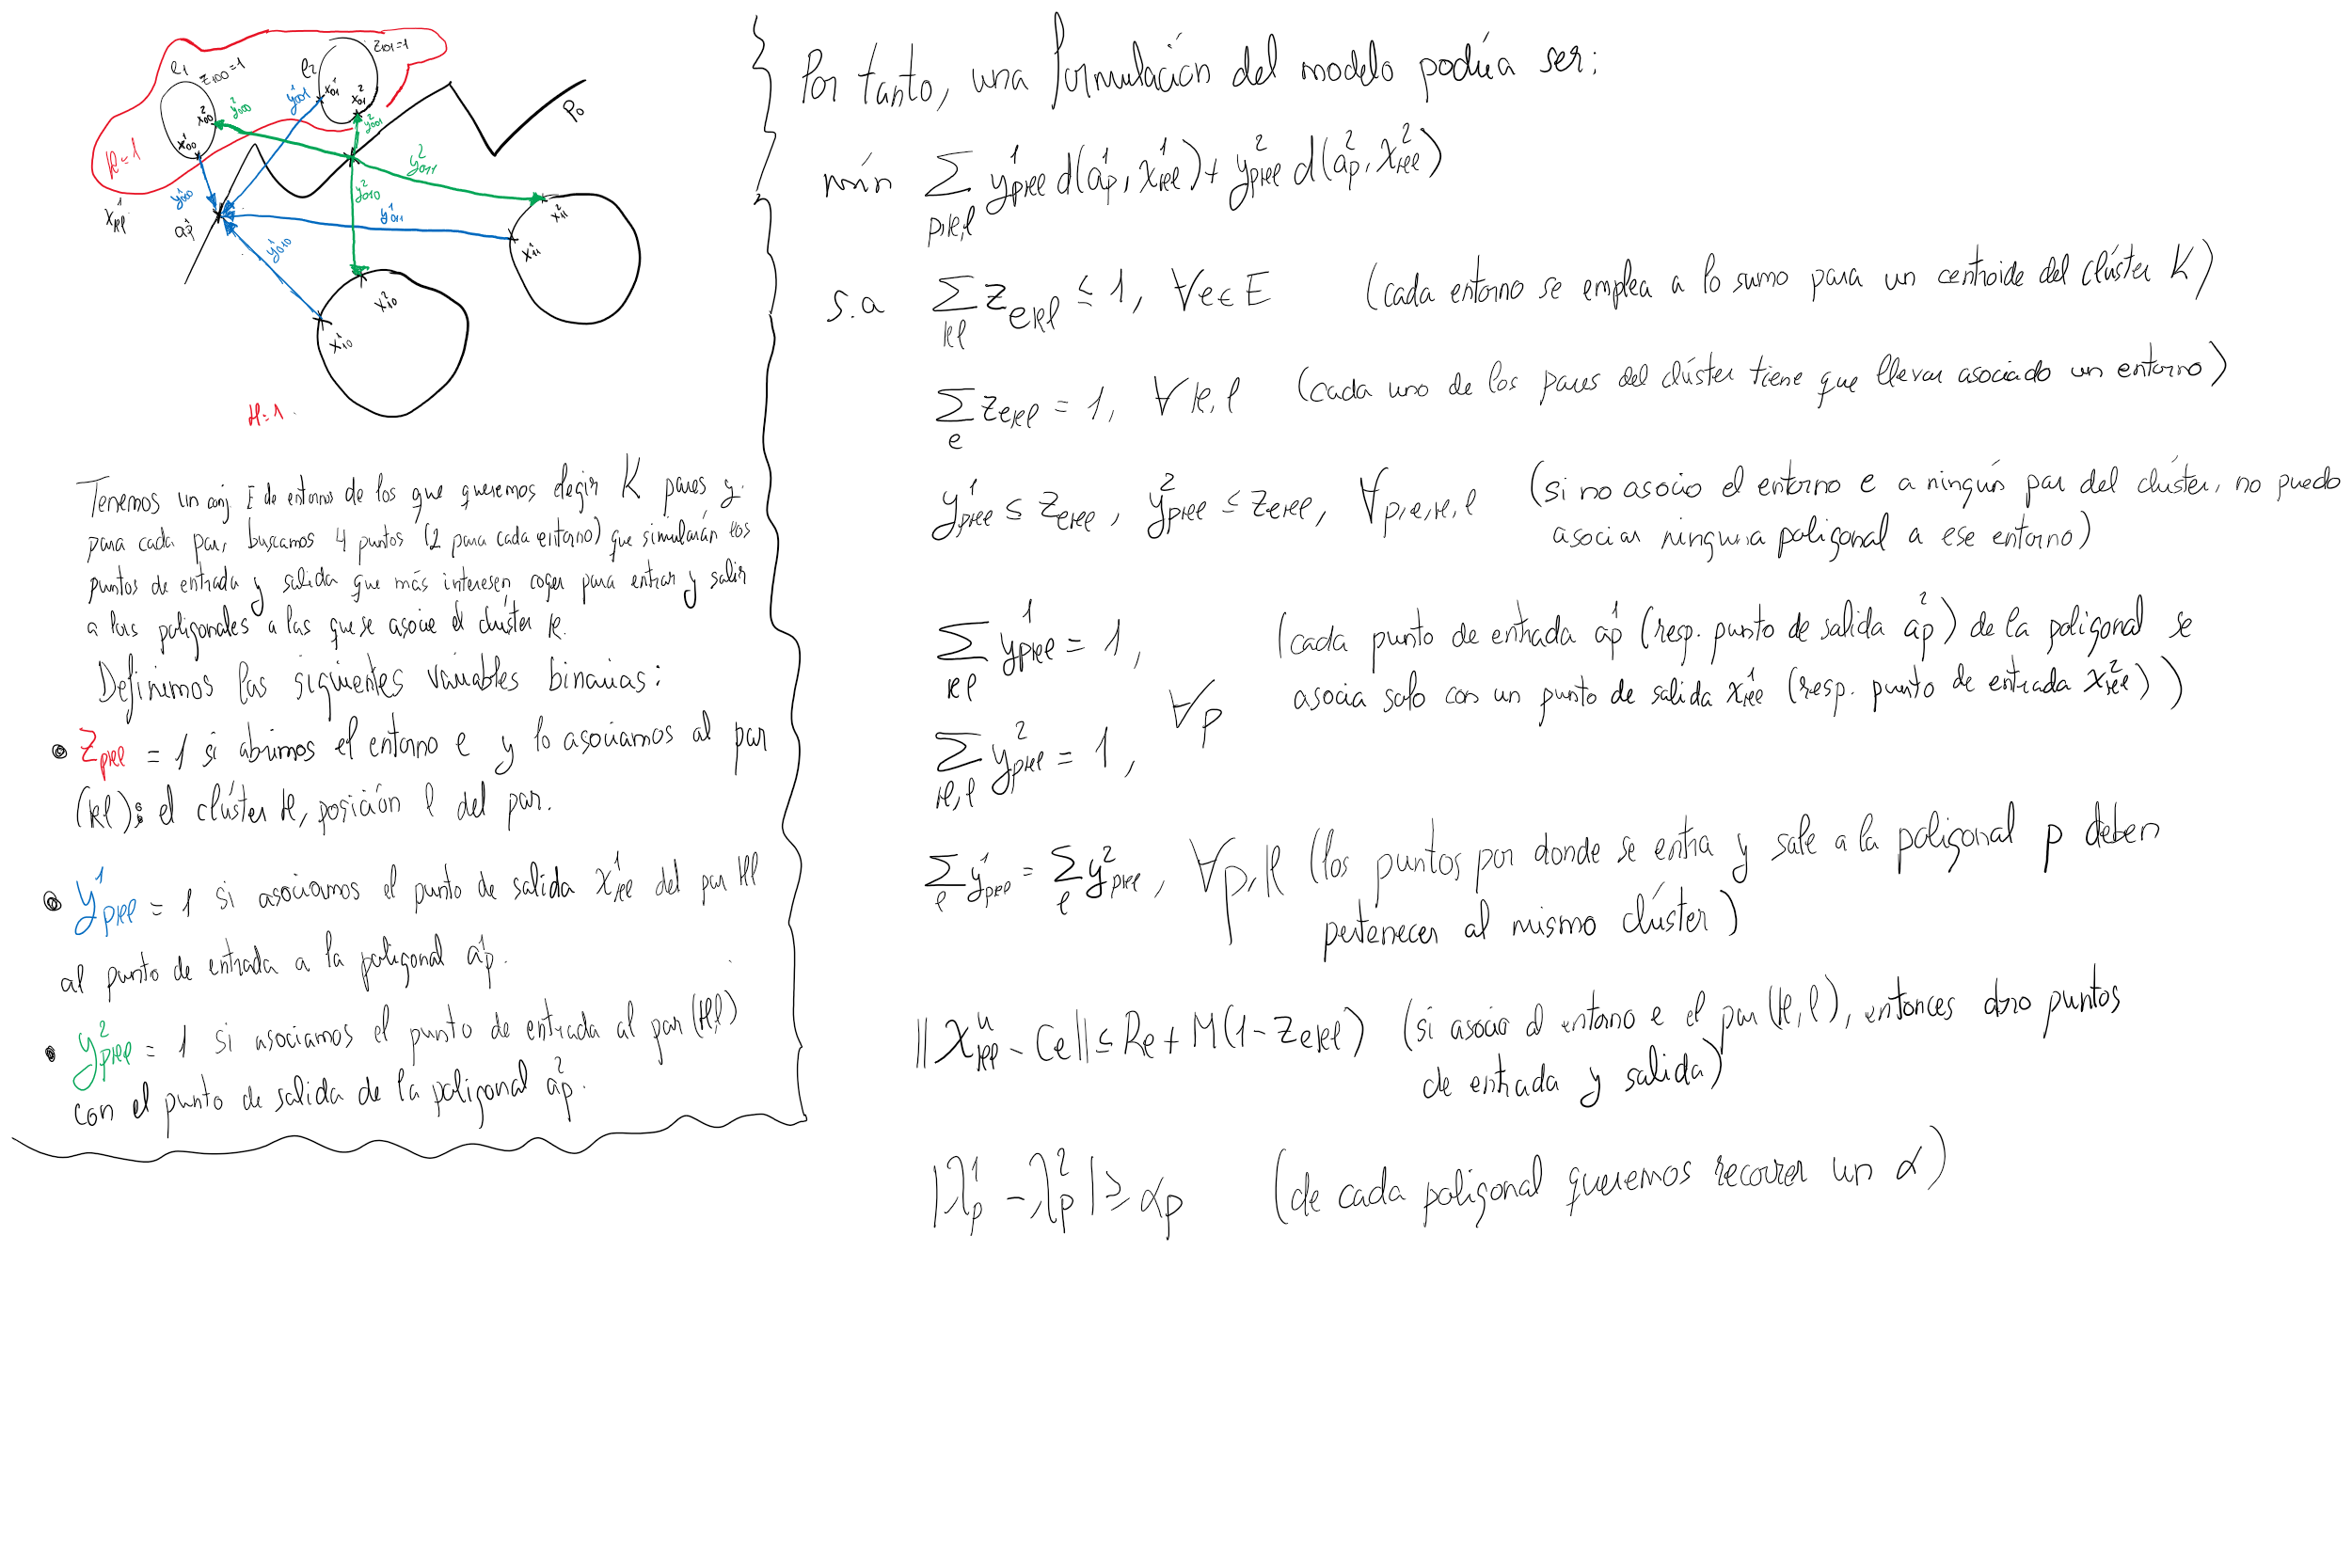 e1
z100=1
e2
z101=1
k=1
P0
x¹kl
a¹p
y¹000
y²000
y¹001
y²001
y²011
y²010
y¹011
y¹010
x¹00
x²00
x¹01
x²01
x²11
x¹11
x²10
x¹10
k=1.
Tenemos un conj E de entornos de los que queremos elegir K pares y
para cada par, buscamos 4 puntos (2 para cada entorno) que simularán los
puntos de entrada y salida que más interesen coger para entrar y salir
a las poligonales a las que se asocie el clúster k.
Definimos las siguientes variables binarias:
• zpkl = 1 si abrimos el entorno e y lo asociamos al par
(kl): el clúster k, posición l del par.
• y¹pkl = 1 si asociamos el punto de salida x¹kl del par kl
al punto de entrada a la poligonal a¹p.
• y²pkl = 1 si asociamos el punto de entrada al par (k,l)
con el punto de salida de la poligonal a²p.
Por tanto, una formulación del modelo podría ser:
min ∑p,k,l y¹pkl d(a¹p, x¹kl) + y²pkl d(a²p, x²kl)
s.a ∑kl zekl ≤ 1, ∀e∈E (cada entorno se emplea a lo sumo para un centroide del clúster K)
∑e zekl = 1, ∀k,l (cada uno de los pares del clúster tiene que llevar asociado un entorno)
y¹pkl ≤ zekl, y²pkl ≤ zekl, ∀p,e,k,l (si no asocio el entorno e a ningún par del clúster, no puedo
asociar ninguna poligonal a ese entorno)
∑kl y¹pkl = 1, (cada punto de entrada a¹p (resp. punto de salida a²p) de la poligonal se
∀p asocia solo con un punto de salida x¹kl (resp. punto de entrada x²kl))
∑k,l y²pkl = 1,
∑l y¹pkl = ∑l y²pkl, ∀p,k (los puntos por donde se entra y sale a la poligonal p deben
pertenecer al mismo clúster)
||xᵘkl - Ce|| ≤ Re + M(1-zekl) (si asocio el entorno e el par (k,l), entonces abro puntos
de entrada y salida)
|λ¹p - λ²p| ≥ αp (de cada poligonal queremos recorrer un α)